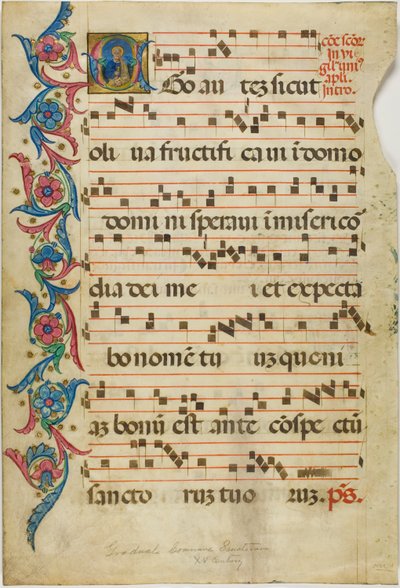 cōe scōr
in vi
gil' uniꝰ
apl'i
intro.
Ego au teꝫ sicut
oli ua fructifi caui ī domo
domi ni speraui ī miserico
dia dei me i et expecta
bo nomē tu uꝫ quoni
aꝫ bonū est ante cōspe ctū
sancto ruꝫ tuo ruꝫ. p̄s.
Graduale Comune Sanctorum
XV Century